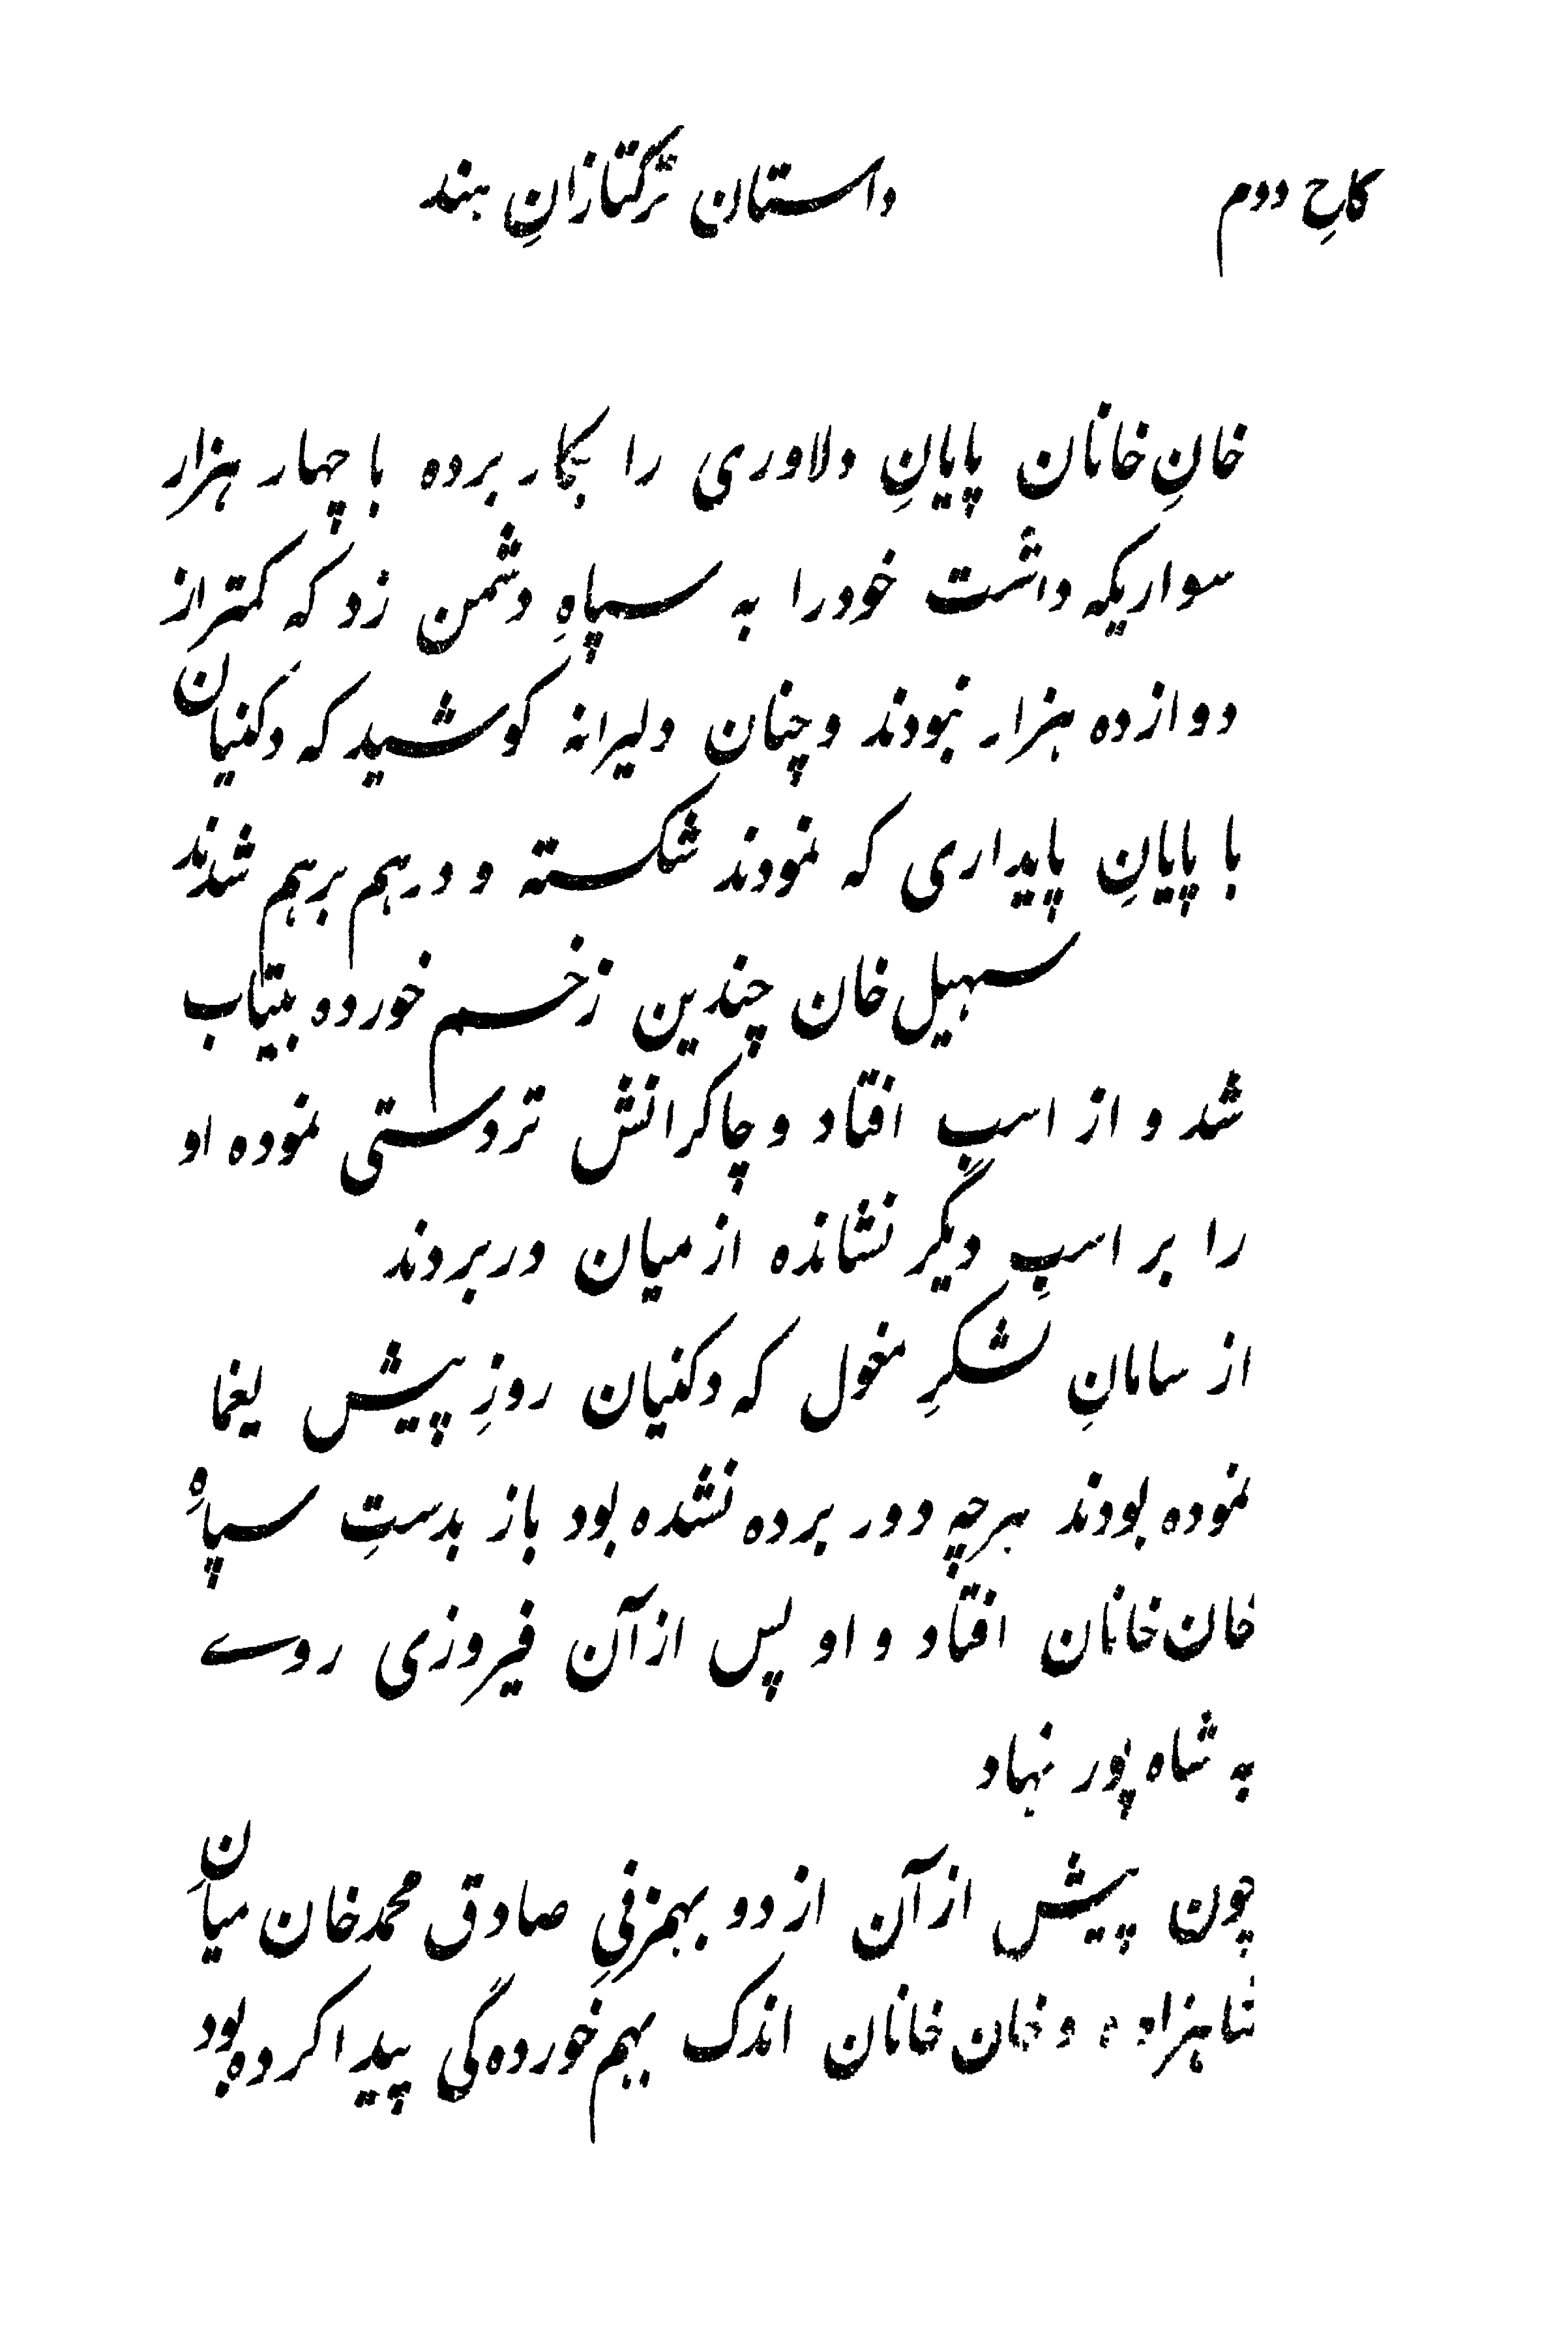 کاخِ دوم داستان ترکتازانِ هند
خانِ خانان پایانِ دلاوری را بکار برده با چهار هزار
سواریکه داشت خودرا به سپاهِ دشمن زد که کمتر از
دوازده هزار نبودند و چنان دلیرانه کوشید که دکنیان
با پایانِ پایداری که نمودند شکسته و درهم برهم شدند
سهیل خان چندین زخم خورده بیتاب
شد و از اسب افتاد و چاکرانش تردستی نموده او
را بر اسبِ دیگر نشانده از میان دربردند
از سامانِ لشکرِ مغول که دکنیان روزِ پیش یغما
نموده بودند هرچه دور برده نشده بود باز بدستِ سپاهِ
خان خانان افتاد و او پس ازآن فیروزی روے
به شاه پور نهاد
چون پیش ازآن از دو بهمزنیِ صادق محمد خان میانِ
شاهزاده و خان خانان اندک بهم خورده گی پیدا کرده بود